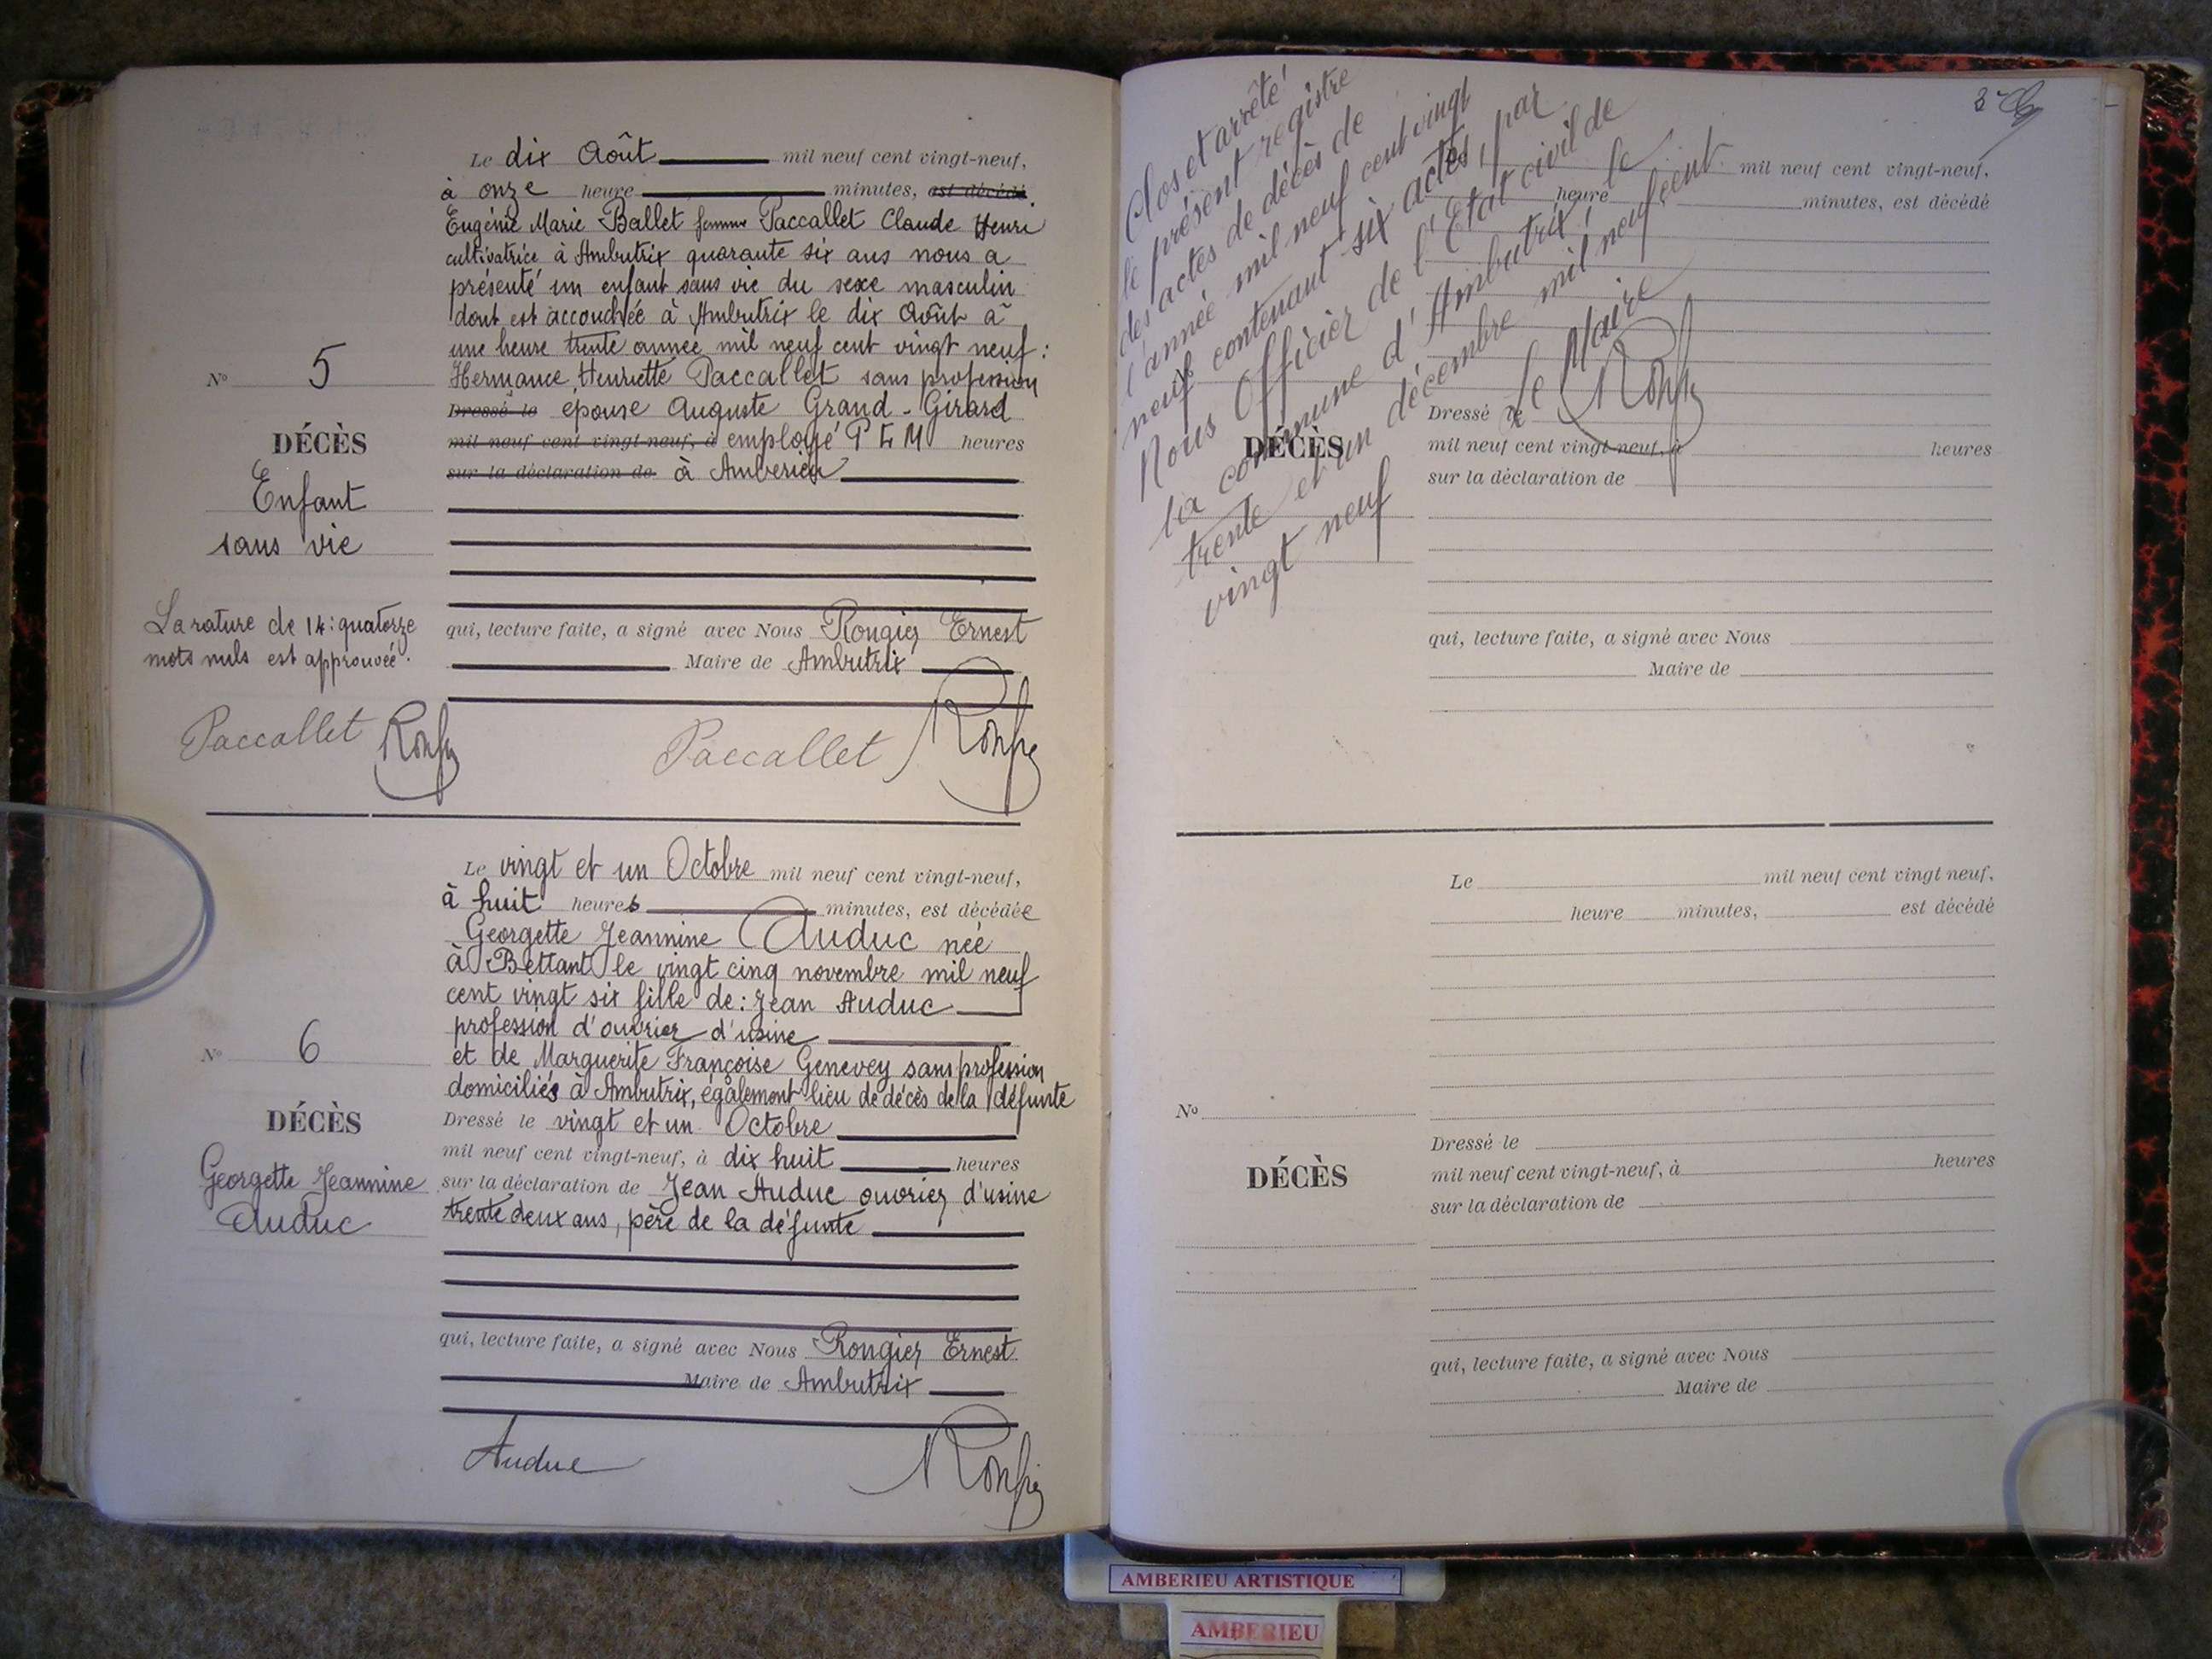 Le dix Août mil neuf cent vingt-neuf,
à onze heure minutes, est décédé
Eugénie Marie Ballet femme Paccallet Claude Henri
cultivatrice à Ambutrix quarante six ans nous a
présenté un enfant sans vie du sexe masculin
dont est accouchée à Ambutrix le dix Août à
une heure trente année mil neuf cent vingt neuf :
Hermance Henriette Paccallet sans profession
Dressé le épouse Auguste Grand-Girard
mil neuf cent vingt-neuf, à employé P L M heures
sur la déclaration de à Amberieu
qui, lecture faite, a signé avec Nous Rougier Ernest
Maire de Ambutrix
Nº 5
DÉCÈS
Enfant
sans vie
La rature de 14 : quatorze
mots nuls est approuvée.
Paccallet
Paccallet
Le vingt et un Octobre mil neuf cent vingt-neuf,
à huit heures minutes, est décédée
Georgette Jeannine Auduc née
à Bettant le vingt cinq novembre mil neuf
cent vingt six fille de : Jean Auduc
profession d'ouvrier d'usine
et de Marguerite Françoise Genevey sans profession
domiciliés à Ambutrix, également lieu de décès de la défunte
Dressé le vingt et un Octobre
mil neuf cent vingt-neuf, à dix huit heures
sur la déclaration de Jean Auduc ouvrier d'usine
trente deux ans, père de la défunte
qui, lecture faite, a signé avec Nous Rougier Ernest
Maire de Ambutrix
Nº 6
DÉCÈS
Georgette Jeannine
Auduc
Auduc
Clos et arrêté
le présent registre
des actes de décès de
l'année mil neuf cent vingt
neuf contenant six actes, par
Nous Officier de l'Etat civil de
la commune d'Ambutrix, le
trente et un décembre mil neuf cent
vingt neuf
Le Maire
mil neuf cent vingt-neuf,
heure minutes, est décédé
DÉCÈS
Dressé le
mil neuf cent vingt-neuf, à heures
sur la déclaration de
qui, lecture faite, a signé avec Nous
Maire de
Le mil neuf cent vingt neuf,
heure minutes, est décédé
Nº
DÉCÈS
Dressé le
mil neuf cent vingt-neuf, à heures
sur la déclaration de
qui, lecture faite, a signé avec Nous
Maire de
AMBERIEU ARTISTIQUE
AMBERIEU